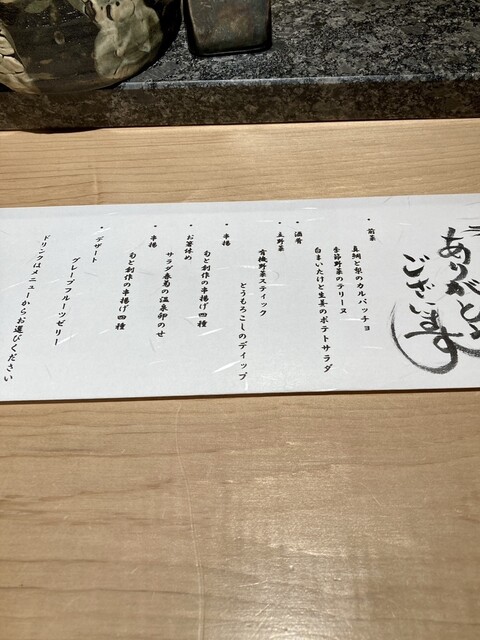 ありがとう
ございます
・前菜
真鯛と梨のカルパッチョ
季節野菜のテリーヌ
白まいたけと生姜のポテトサラダ
・酒肴
・生野菜
有機野菜スティック
とうもろこしのディップ
・串揚
旬と創作の串揚げ四種
・お箸休め
サラダ春菊の温泉卵のせ
・串揚
旬と創作の串揚げ四種
・デザート
グレープフルーツゼリー
ドリンクはメニューからお選びください